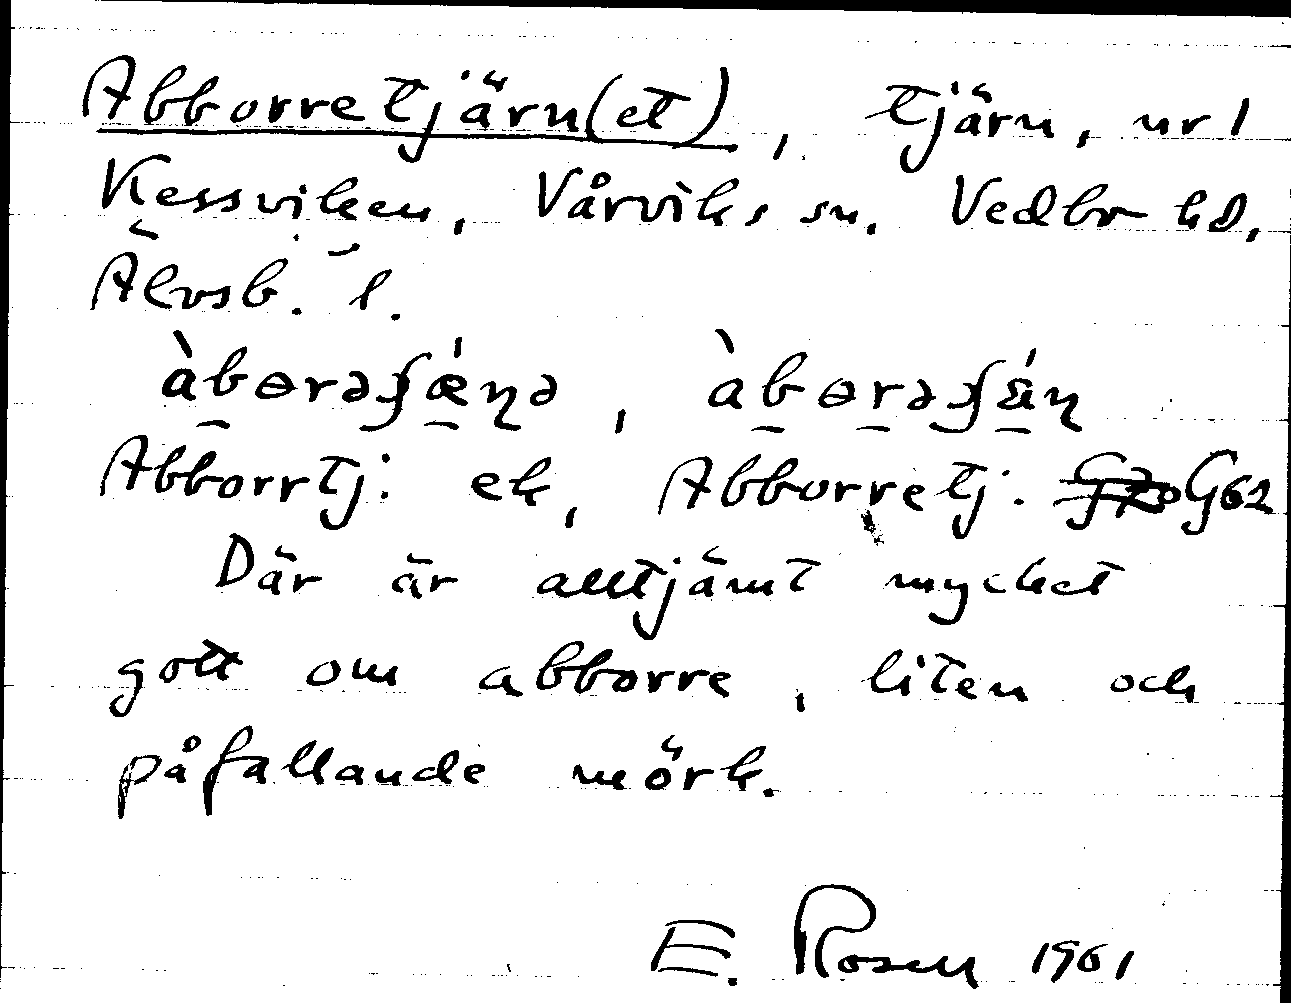 Abborretjärn(et), tjärn, nr 1
Kessviken, Vårviks sn. Vedbo hd,
Älvsb. l.
àbɵrəʃǽɳə, àbɵrəʃǽɳ
Abborrtj. ek, Abborretj. G62
Där är alltjämt mycket
gott om abborre, liten och
påfallande mörk.
E. Rosell 1961